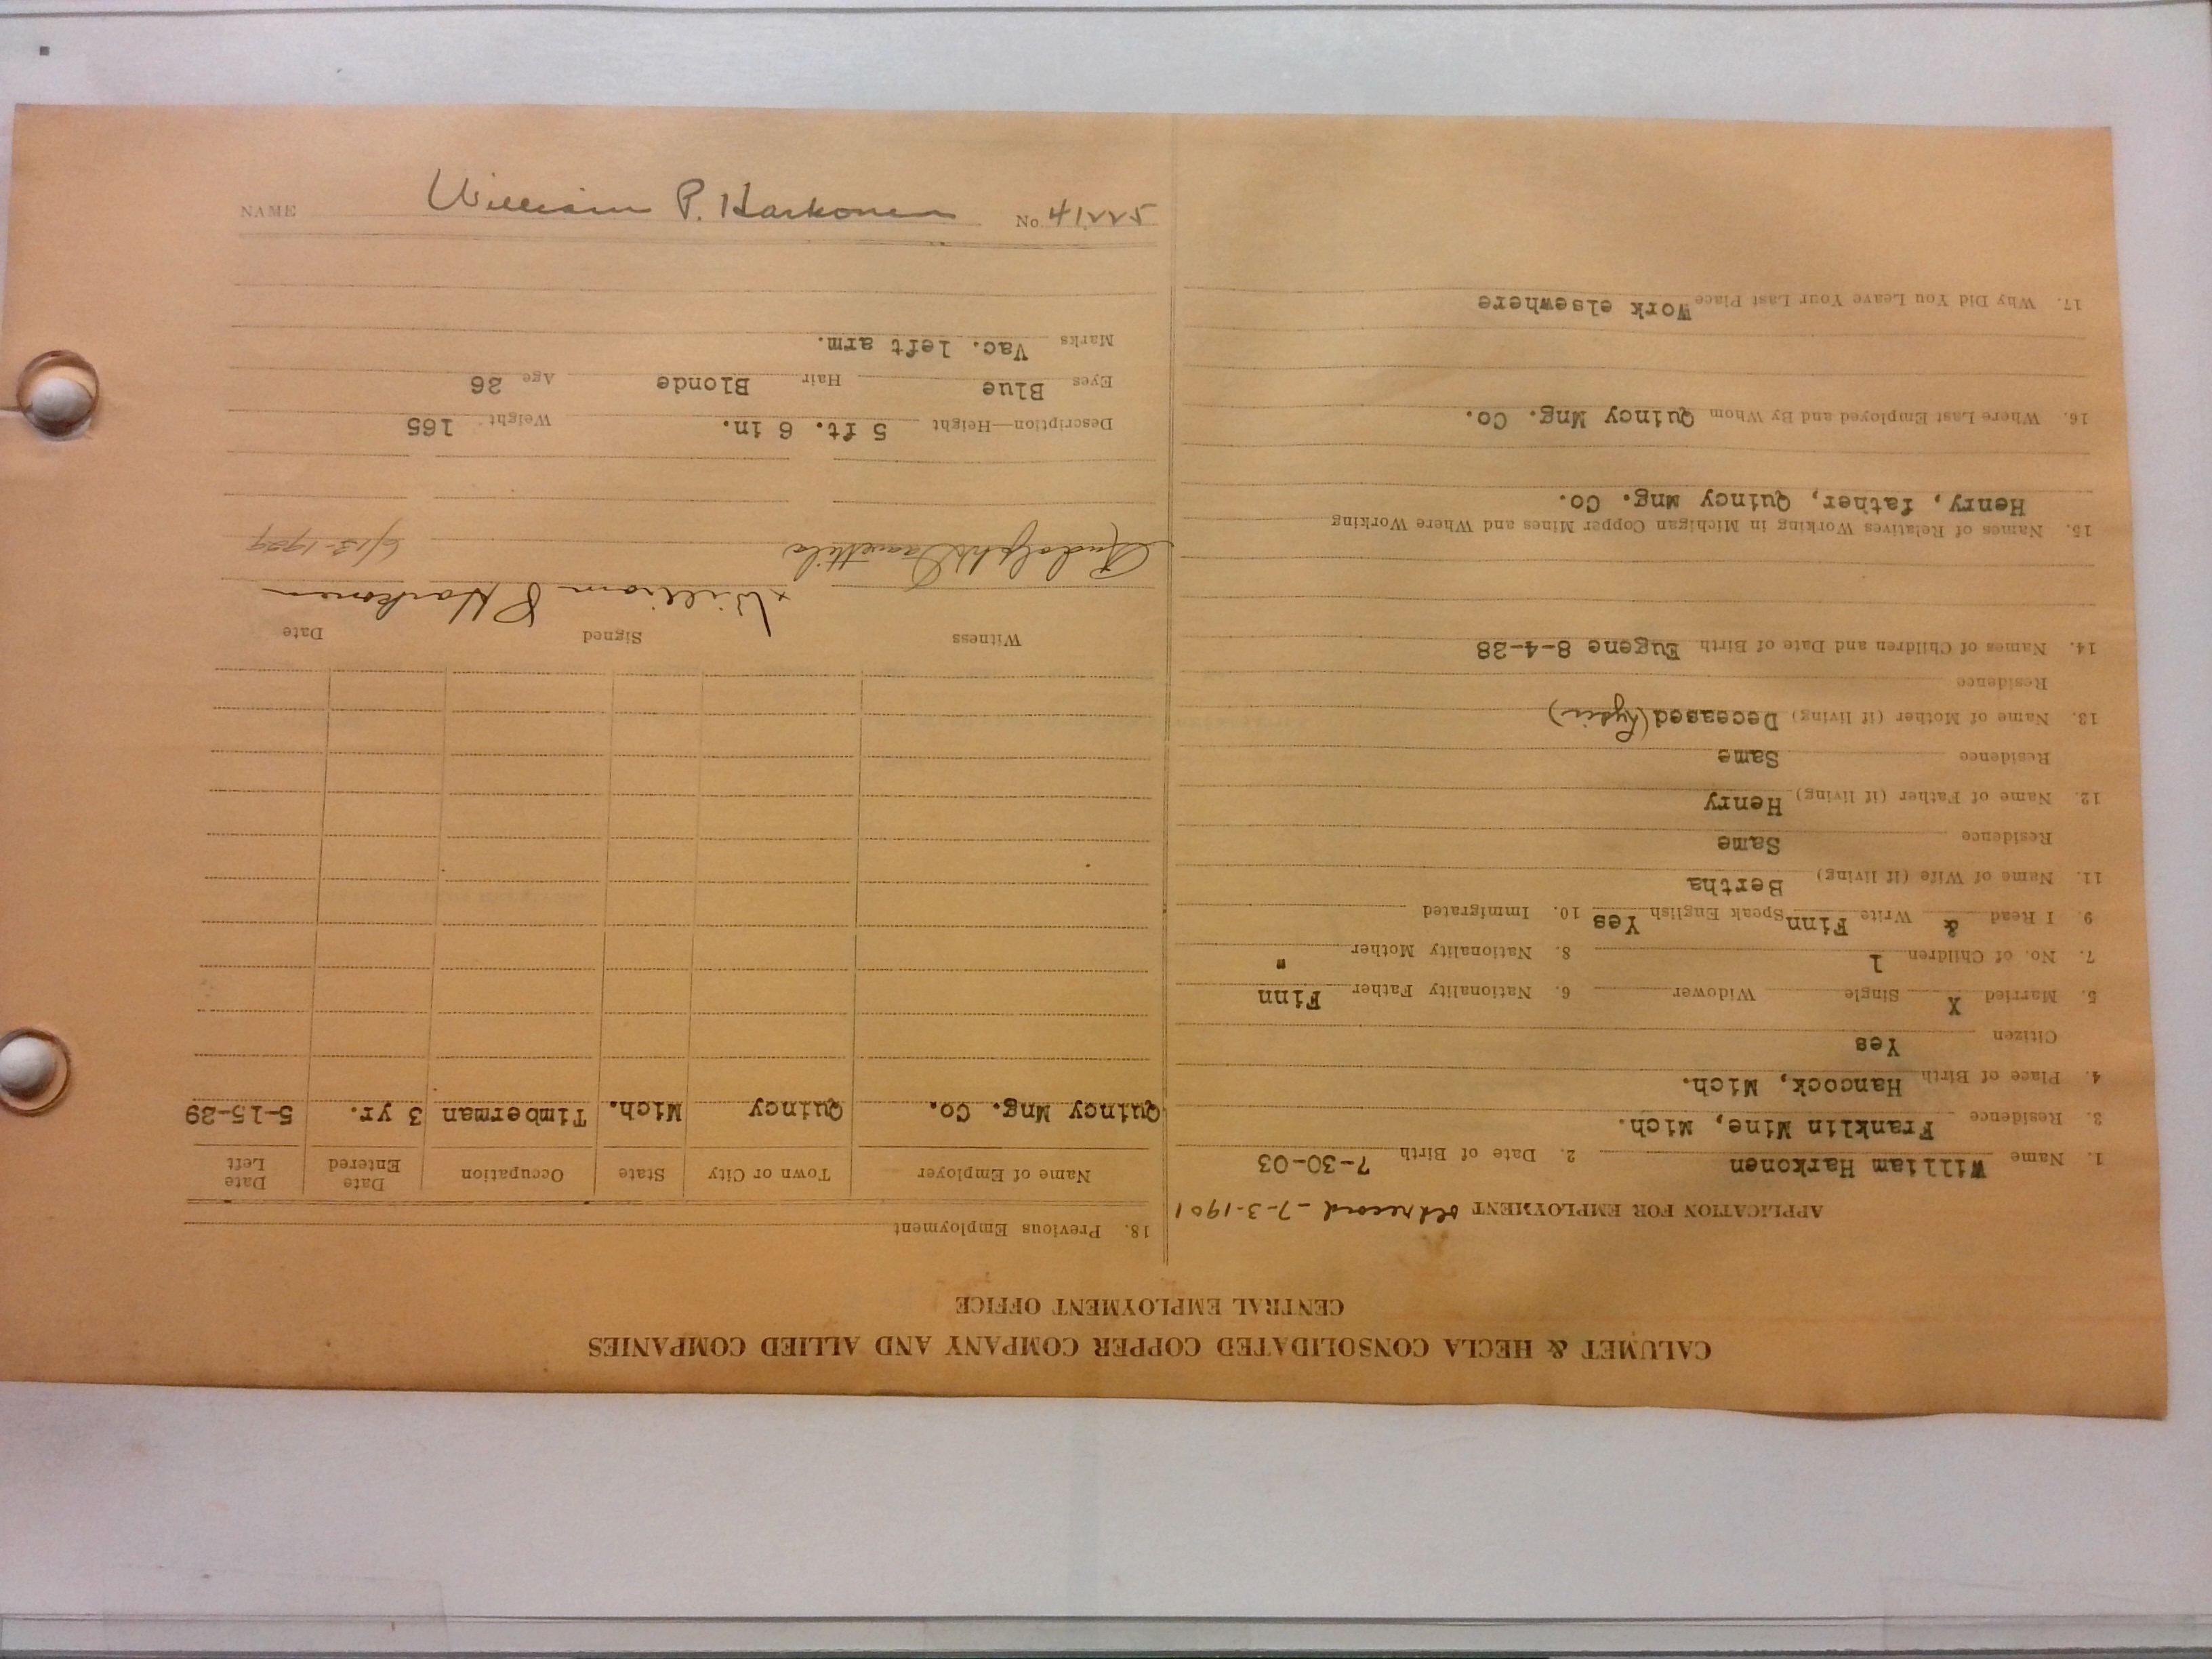 CALUMET & HECLA CONSOLIDATED COPPER COMPANY AND ALLIED COMPANIES
CENTRAL EMPLOYMENT OFFICE
APPLICATION FOR EMPLOYMENT old record - 7-3-1901
1. Name William Harkonen 2. Date of Birth 7-30-03
3. Residence Franklin Mine, Mich.
4. Place of Birth Hancock, Mich.
Citizen Yes
5. Married X Single Widower 6. Nationality Father Finn
7. No. of Children 1 8. Nationality Mother "
9. I Read & Write Finn Speak English Yes 10. Immigrated
11. Name of Wife (if living) Bertha
Residence Same
12. Name of Father (if living) Henry
Residence Same
13. Name of Mother (if living) Deceased
Residence
14. Names of Children and Date of Birth Eugene 8-4-28
15. Names of Relatives Working in Michigan Copper Mines and Where Working
Henry, father, Quincy Mng. Co.
16. Where Last Employed and By Whom Quincy Mng. Co.
17. Why Did You Leave Your Last Place Work elsewhere
18. Previous Employment
Name of Employer Town or City State Occupation Date Entered Date Left
Quincy Mng. Co. Quincy Mich. Timberman 3 yr. 5-15-29
Witness Signed Date
x William P Harkonen
Rudolph 6/13-1929
Description—Height 5 ft. 6 in. Weight 165
Eyes Blue Hair Blonde Age 26
Marks Vac. left arm.
NAME William P. Harkonen No. 41225